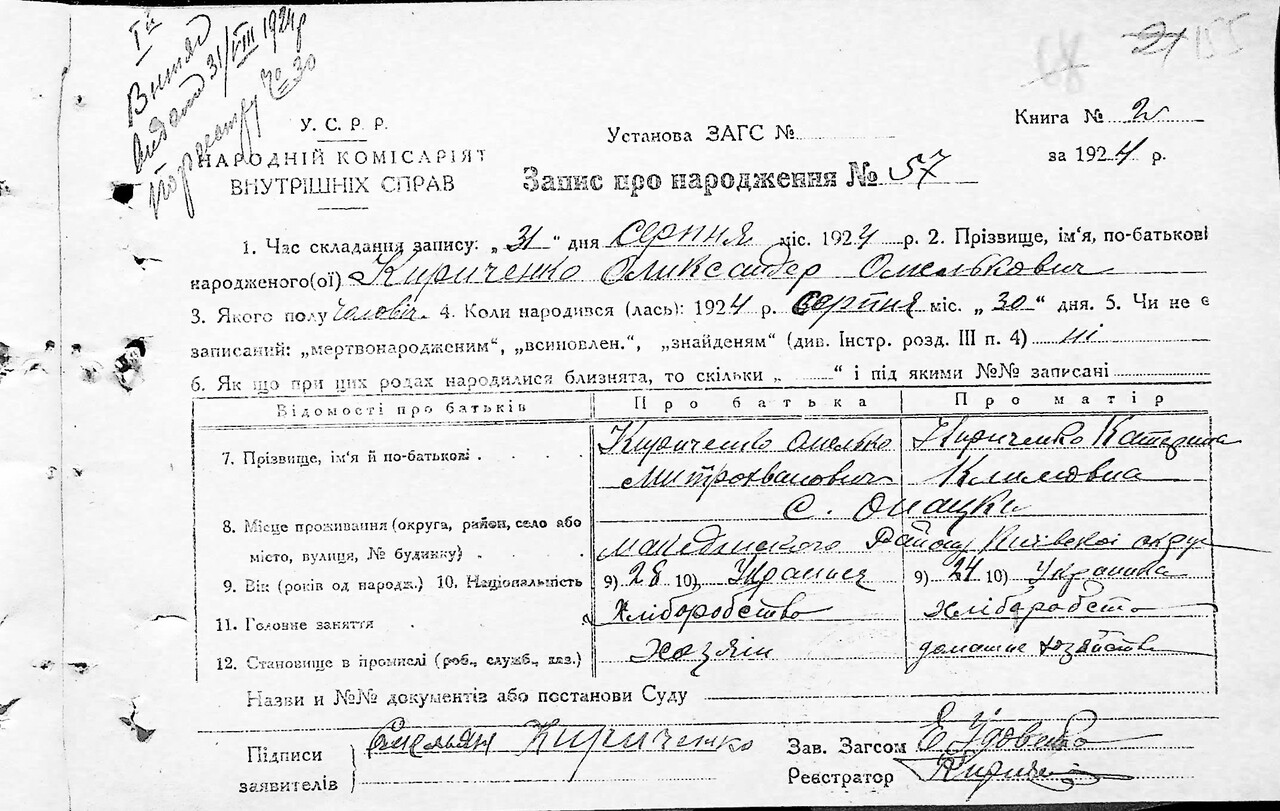 Iй
Витяг
видано 31/VIII 1924 р
№ 30
68
21 155
У. С. Р. Р.
НАРОДНІЙ КОМІСАРІЯТ
ВНУТРІШНІХ СПРАВ
Установа ЗАГС №
Книга № 2
за 1924 р.
Запис про народження № 57
1. Час складання запису: „31“ дня серпня міс. 1924 р. 2. Прізвище, ім‘я, по-батькові
народженого(ої) Кириченко Олександер Омелькович
3. Якого полу чолові. 4. Коли народився (лась): 1924 р. серпня міс. „30“ дня. 5. Чи не є
записаний: „мертвонародженим“, „всиновлен.“, „знайденям“ (див. Інстр. розд. III п. 4) ні
6. Як що при цих родах народилися близнята, то скільки „ “ і під якими №№ записані
Відомості про батьків Про батька Про матір
7. Прізвище, ім‘я й по-батькові Кириченко Омелько Кириченко Катерина
Митрохванович Климовна
8. Місце проживання (округа, район, село або
місто, вулиця, № будинку) с.
Району Київскої округ
9. Вік (років од народж.) 10. Національність 9) 28 10) Украинец 9) 24 10) Украинка
11. Головне заняття Хліборобство хліборобство
12. Становище в промислі (роб., служб., хаз.) Хазяін домашне хозяйство
Назви и №№ документів або постанови Суду
Підписи
заявителів
Емельян Кириченко
Зав. Загсом Е Удовенко
Реєстратор Кириче